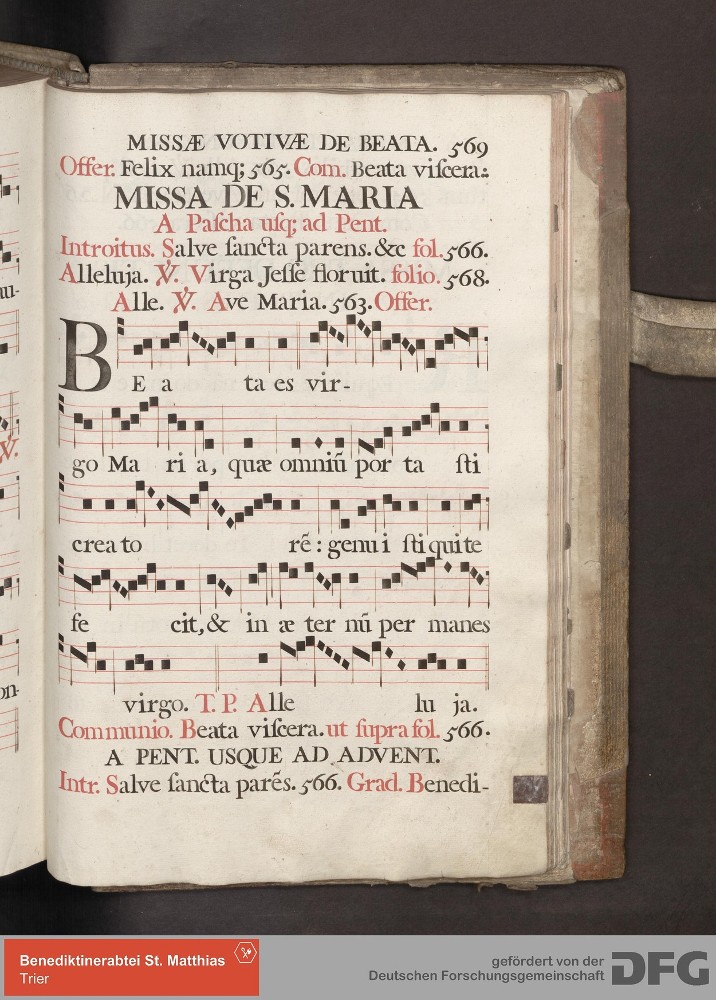 MISSÆ VOTIVÆ DE BEATA. 569
Offer. Felix namq; 565. Com. Beata viſcera:
MISSA DE S. MARIA
A Paſcha uſq; ad Pent.
Introitus. Salve ſancta parens. &c fol. 566.
Alleluja. ℣. Virga Jeſſe floruit. folio. 568.
Alle. ℣. Ave Maria. 563. Offer.
BE a ta es vir-
go Ma ri a, quæ omniū por ta ſti
crea to rē: genu i ſti qui te
fe cit, & in æ ter nū per manes
virgo. T. P. Alle lu ja.
Communio. Beata viſcera. ut ſupra fol. 566.
A PENT. USQUE AD ADVENT.
Intr. Salve ſancta parēs. 566. Grad. Benedi-
au-
℣.
on-
Benediktinerabtei St. Matthias
Trier
gefördert von der
Deutschen Forschungsgemeinschaft DFG